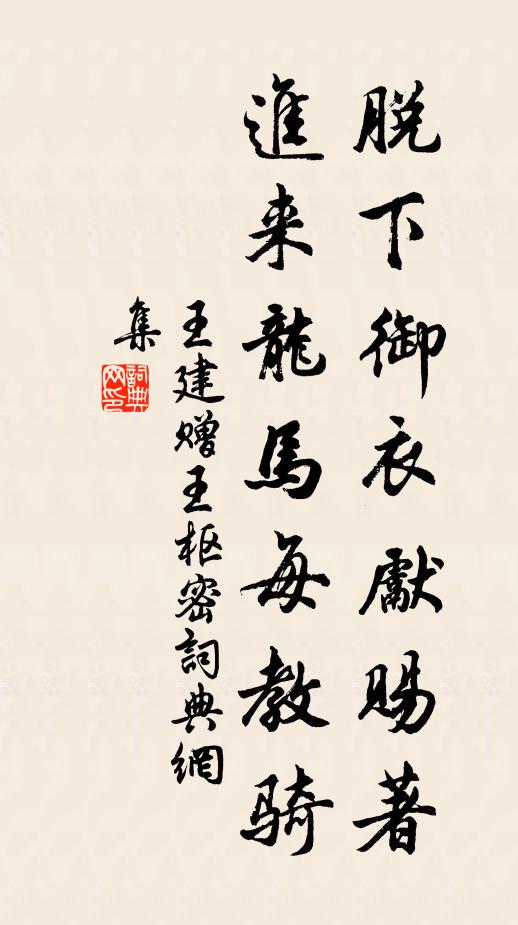 脱下御衣獻賜著
進来龍馬每教骑
王建赠王枢密詞典網
集
詞典
网印